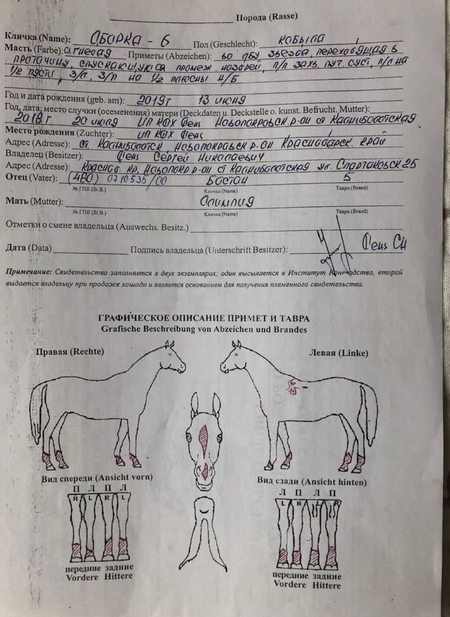 Порода (Rasse)
Кличка (Name): ОБОРКА - 6 Пол (Geschlecht): КОБЫЛА
Масть (Farbe): Приметы (Abzeichen): во лбу звезда, переходящая в
проточину, спускающуюся промеж ноздрей, п/п захв. пут. суст, л/п на
1/2 пясти, з/л, з/п на 1/2 плюсны Ч/Б
Год и дата рождения (geb. am): 2019г 13 июня
Год, дата, место случки (осеменения) матери (Deckdaten u. Deckstelle o. kunst. Befrucht. Mutter):
2018г 20 июля ИП КФХ Фень Новопокровск р-он ст Калниболотская
Место рождения (Zuchter): ИП КФХ Фень
Адрес (Adresse): ст Калниболотск, Новопокровск р-он Краснодарск. край
Владелец (Besitzer): Фень Сергей Николаевич
Адрес (Adresse): Краснод. кр, Новопокр р-он ст Калниболотская ул. Спартаковск 25
Отец (Vater): (480) 0710535/00 Бостон 5
№ ГПК (St.B.) Кличка (Name) Тавро (Brand)
Мать (Mutter): Олимпия
№ ГПК (St.B.) Кличка (Name) Тавро (Brand)
Отметки о смене владельца (Auswechs. Besitz.)
Дата (Data) Подпись владельца (Unterschrift Besitzer): Фень СН
Примечание: Свидетельство заполняется в двух экземплярах: один высылается в Институт Коневодства, второй
выдается владельцу при продаже лошади и является основанием для получения племенного свидетельства.
ГРАФИЧЕСКОЕ ОПИСАНИЕ ПРИМЕТ И ТАВРА
Grafische Beschreibung von Abzeichen und Brandes
Правая (Rechte) Левая (Linke)
6
19
Вид спереди (Ansicht vorn) Вид сзади (Ansicht hinten)
П Л П Л Л П Л П
R L R L L R L R
передние задние передние задние
Vordere Hittere Vordere Hittere